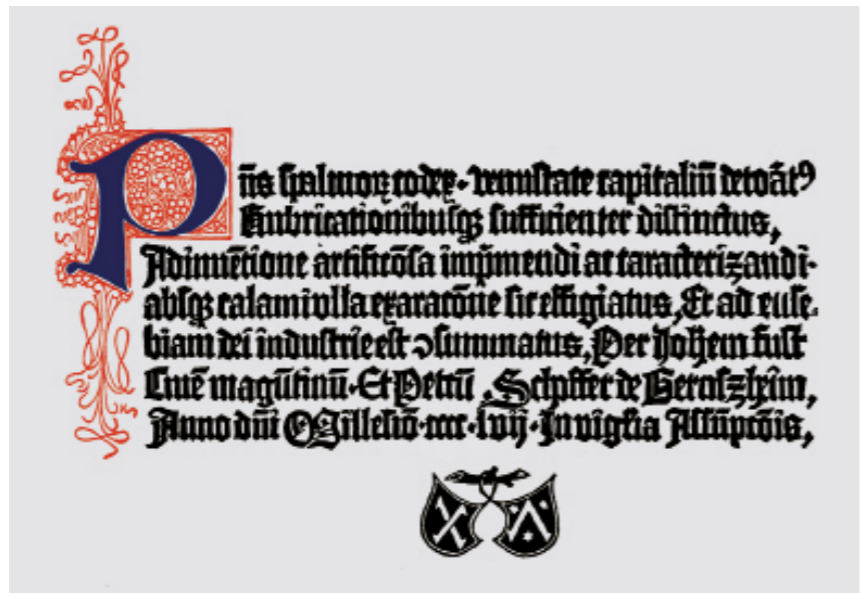 Pñs spalmoꝝ codex· venustate capitaliū decoꝛatꝰ
Rubricationibusqꝫ sufficienter distinctus,
Adinuētione artificōsa impͥmendi ac caracterizandi·
absqꝫ calami vlla exaracōne sic effigiatus, Et ad euse·
biam dei industrie est ↄsummatus, Per Johem fust
Ciuē magūtinū· Et Petrū Schoffer de Gernszheim,
Anno dñi Millesiō·cccc·lvij· In vigilia Assūpcōis,